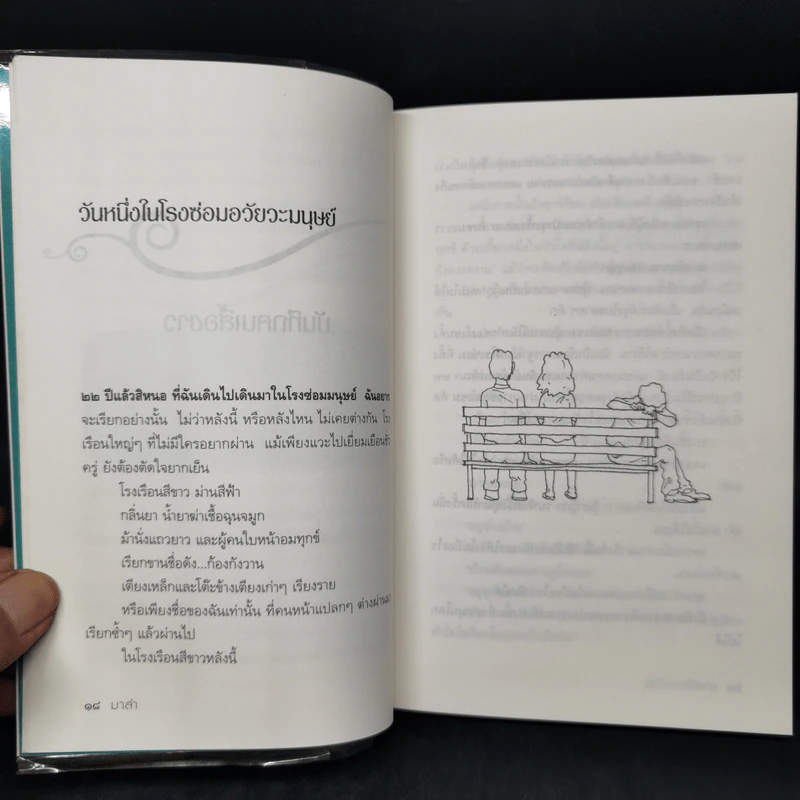 วันหนึ่งในโรงซ่อมอวัยวะมนุษย์
๒๒ ปีแล้วสิหนอ ที่ฉันเดินไปเดินมาในโรงซ่อมมนุษย์ ฉันอยาก
จะเรียกอย่างนั้น ไม่ว่าหลังนี้ หรือหลังไหน ไม่เคยต่างกัน โรง
เรือนใหญ่ๆ ที่ไม่มีใครอยากผ่าน แม้เพียงแวะไปเยี่ยมเยือนชั่ว
ครู่ ยังต้องตัดใจยากเย็น
โรงเรือนสีขาว ม่านสีฟ้า
กลิ่นยา น้ำยาฆ่าเชื้อฉุนจมูก
ม้านั่งแถวยาว และผู้คนใบหน้าอมทุกข์
เรียกขานชื่อดัง...ก้องกังวาน
เตียงเหล็กและโต๊ะข้างเตียงเก่าๆ เรียงราย
หรือเพียงชื่อของฉันเท่านั้น ที่คนหน้าแปลกๆ ต่างผ่านมา
เรียกซ้ำๆ แล้วผ่านไป
ในโรงเรือนสีขาวหลังนี้
๑๘ มาลำ